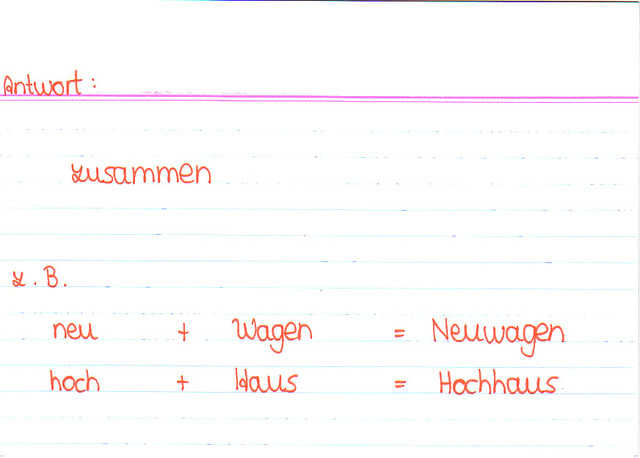 Antwort:
zusammen
z.B.
neu + Wagen = Neuwagen
hoch + Haus = Hochhaus